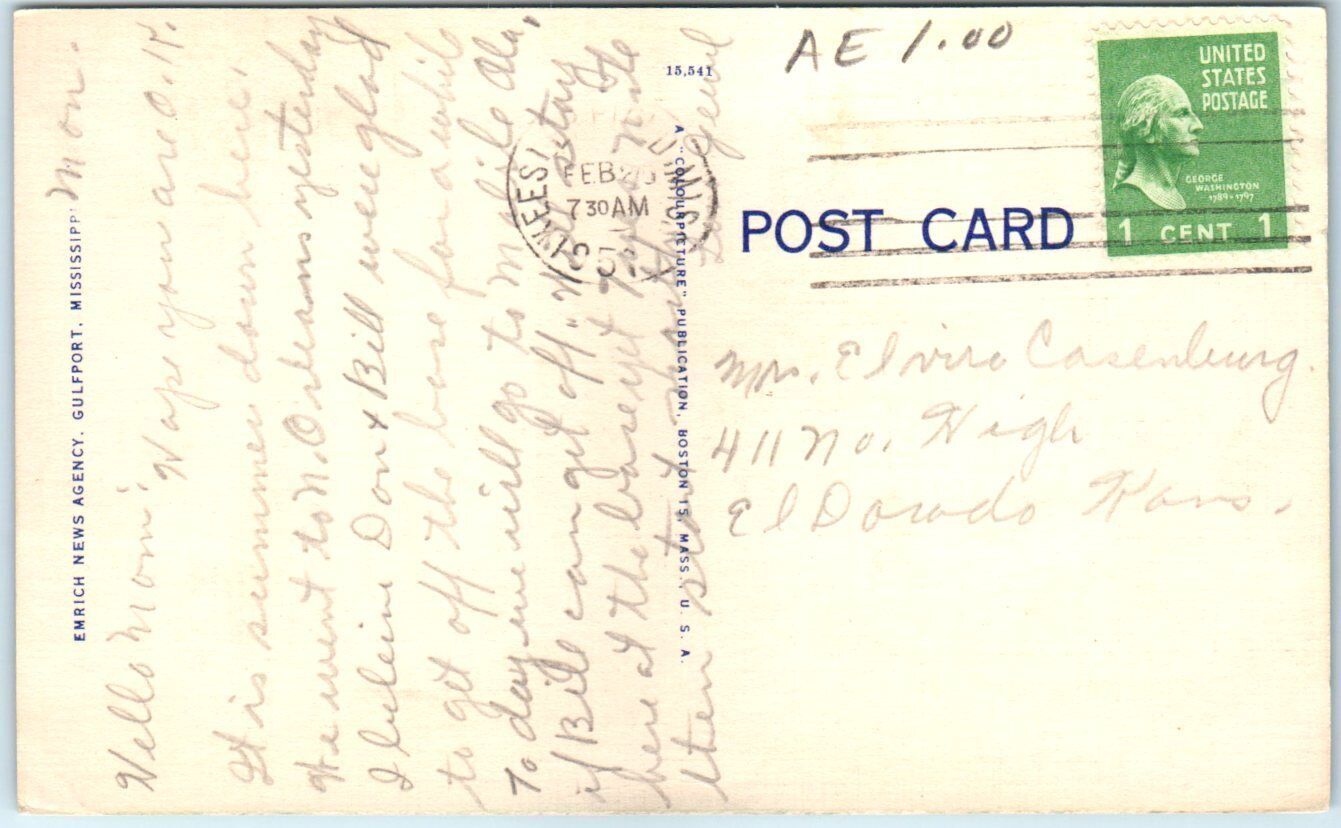 Mon.
Hello Mom; Hope you are O.K.
It is summer down here.
We went to N.Orleans yesterday
I believe Don & Bill were glad
to get off the base for a while
To day we will go to Mobile Ala,
if Bill can get off. We stay
here at the base yet Tues nite
then start
EMRICH NEWS AGENCY, GULFPORT, MISSISSIPPI
15,541
A "COLOURPICTURE" PUBLICATION, BOSTON 15, MASS., U. S. A.
AE 1.00
FEB 20
7 30 AM
POST CARD
UNITED
STATES
POSTAGE
GEORGE
WASHINGTON
1789-1797
1 CENT 1
Mrs. Elvira Casenburg.
411 No. High
El Dorado Kans.